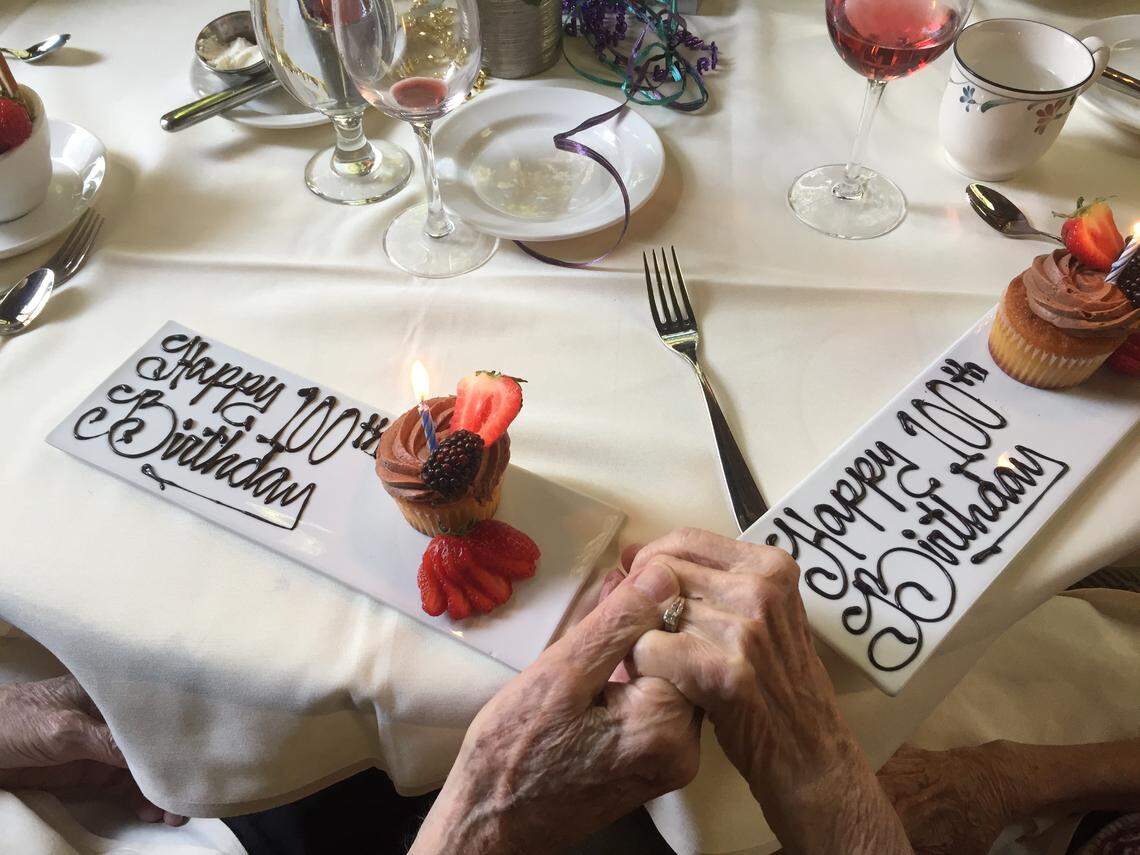 Happy 100th
Birthday
Happy 100th
Birthday